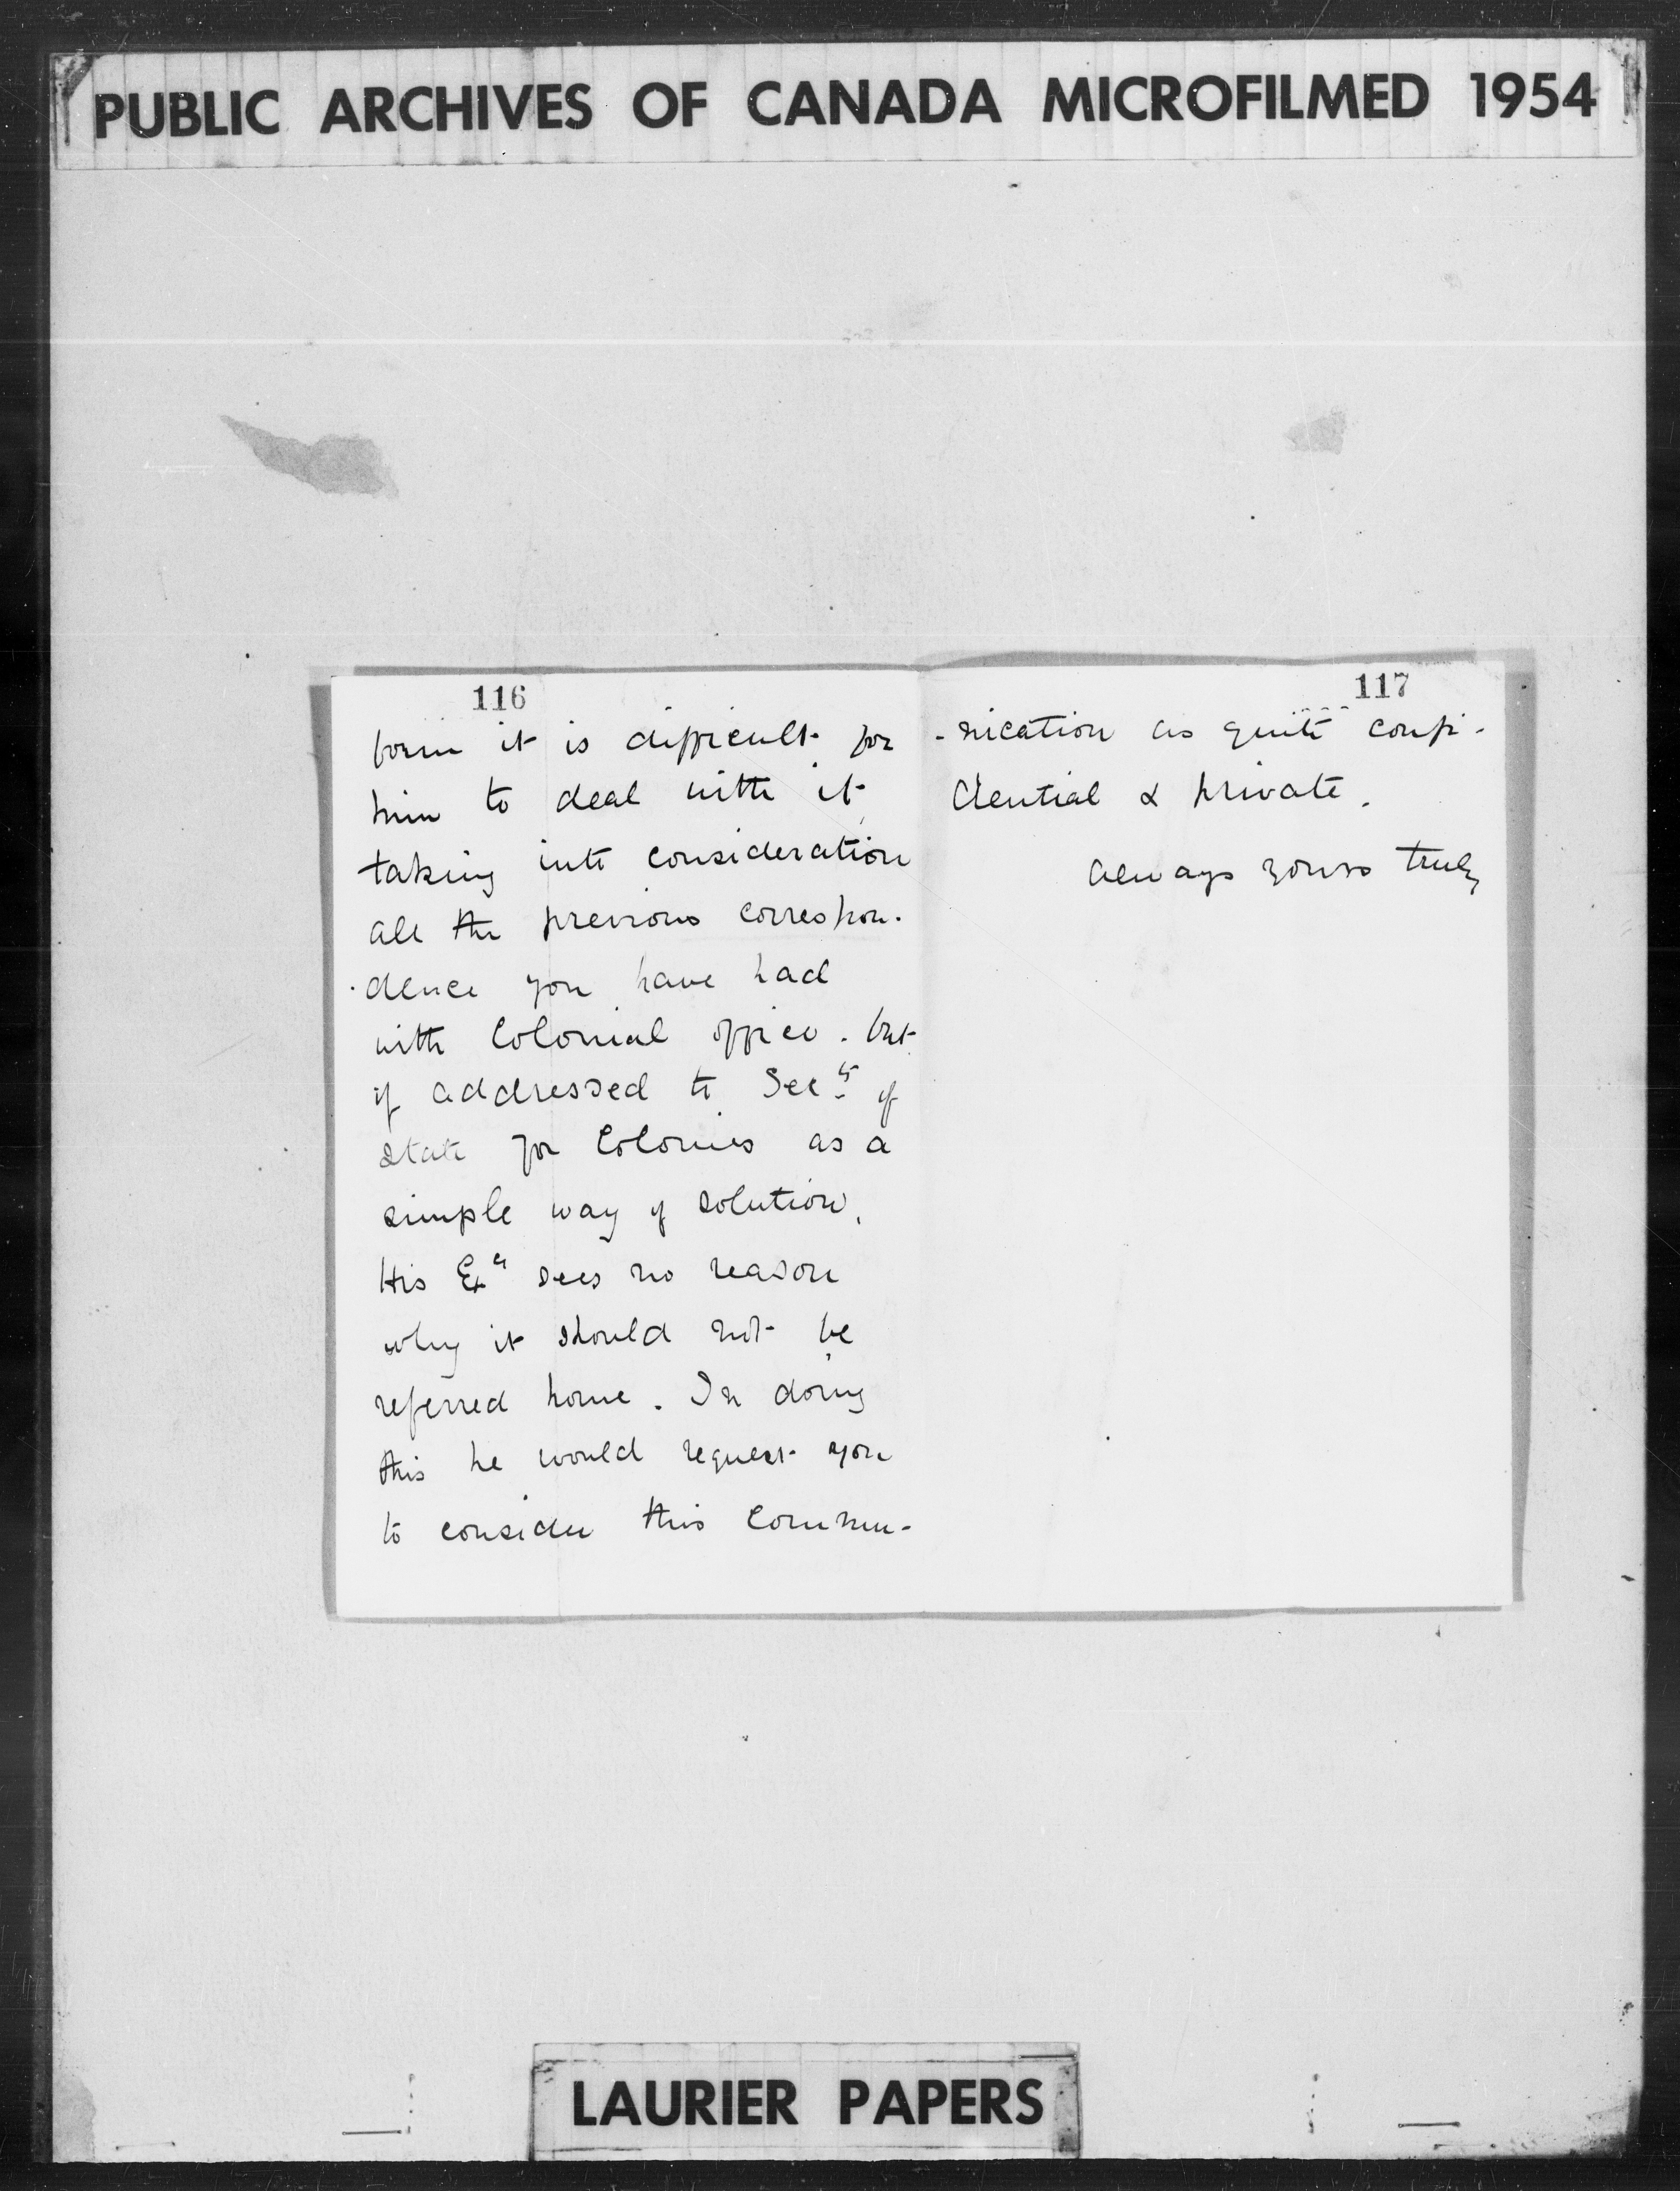 PUBLIC ARCHIVES OF CANADA MICROFILMED 1954
116
form it is difficult for
him to deal with it,
taking into consideration
all the previous correspon-
-dence you have had
with Colonial office. but
if addressed to Secy of
State for Colonies as a
simple way of solution,
His Excy sees no reason
why it should not be
referred home. In doing
this he would request you
to consider this commu-
117
-nication as quite confi-
dential & private.
Always yours truly
LAURIER PAPERS